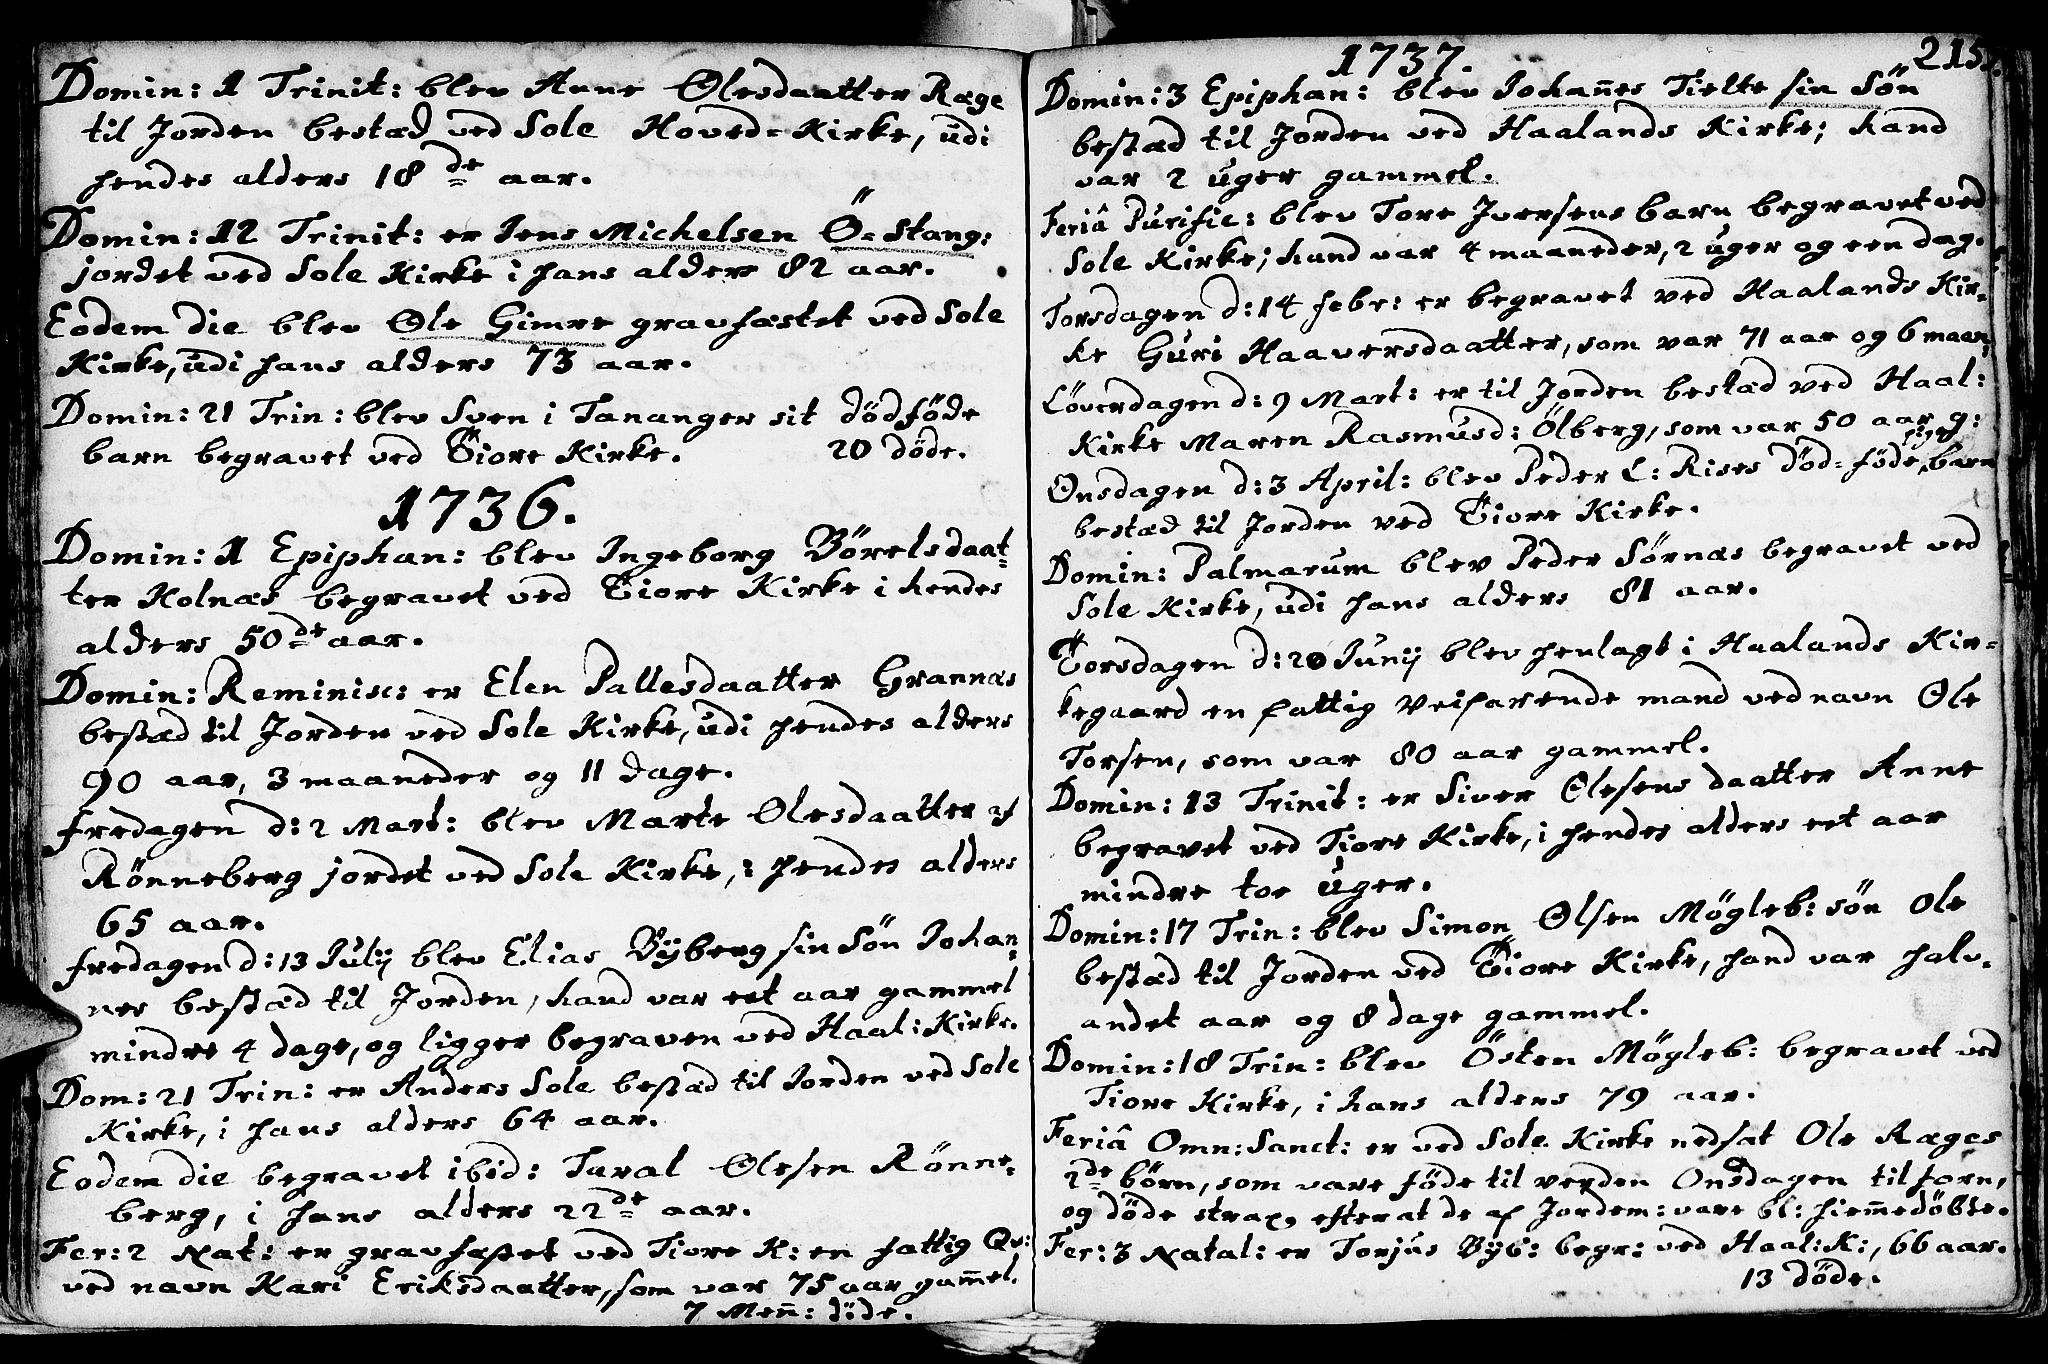 Domin: 1 Trinit: blev Anne Olesdaatter Ræge
til Jorden bestæd ved Sole Hoved-Kirke, udi
hendes alders 18de aar.
Domin: 12 Trinit: er Jens Michelsen Ö-stang:
jordet ved Sole Kirke i hans alders 82 aar.
Eodem die blev Ole Gimre gravfæstet ved Sole
Kirke, udi hans alders 73 aar.
Domin: 21 Trin: blev Sven i Tananger sit dödföde
barn begravet ved Tiore Kirke. 20 döde.
1736.
Domin: 1 Epiphan: blev Ingeborg Börelsdaat-
ter Holnæs begravet ved Tiore Kirke i hendes
alders 50de aar.
Domin: Reminisc: er Elen Pallesdaatter Grannæs
bestæd til Jorden ved Sole Kirke, udi hendes alders
90 aar, 3 maaneder og 11 dage.
Fredagen d: 2 Mart: blev Marte Olesdaatter af
Rönneberg jordet ved Sole Kirke, i hendes alders
65 aar.
Fredagen d: 13 Julij blev Elias Byberg sin Sön Johan-
nes bestæd til Jorden, hand var eet aar gammel
mindre 4 dage, og ligger begraven ved Haal: Kirke.
Dom: 21 Trin: er Anders Sole bestæd til Jorden ved Sole
Kirke, i hans alders 64 aar.
Eodem die begravet ibid: Taral Olesen Rönne-
berg, i hans alders 22de aar.
Fer: 2 Nat: er gravfæstet ved Tiore K: en fattig Qv:
ved navn Kari Eriksdaatter, som var 75 aar gam̄el.
7 Men̄: döde.
1737. 215.
Domin: 3 Epiphan: blev Johan̄es Tielte sin Sön
bestæd til Jorden ved Haalands Kirke; hand
var 2 uger gammel.
Feriâ Purific: blev Tore Jversens barn begravet ved
Sole Kirke; hand var 4 maaneder, 2 uger og een dag.
Torsdagen d: 14 Febr: er begravet ved Haalands Kir-
ke Guri Haaversdaatter, som var 71 aar og 6 maan:
Löverdagen d: 9 Mart: er til Jorden bestæd ved Haal:
Kirke Maren Rasmusd: Ölberg, som var 50 aar g:
Onsdagen d: 3 April: blev Peder L: Rises död-föde pige barn
bestæd til Jorden ved Tiore Kirke.
Domin: Palmarum blev Peder Sörnæs begravet ved
Sole Kirke, udi hans alders 81 aar.
Torsdagen d: 20 Junij blev henlagt i Haalands Kir-
kegaard en fattig Veifarende mand ved navn Ole
Torsen, som var 80 aar gammel.
Domin: 13 Trinit: er Siver Olesens daatter Anne
begravet ved Tiore Kirke, i hendes alders eet aar
mindre toe Uger.
Domin: 17 Trin: blev Simon Olsen Mögleb: sön Ole
bestæd til Jorden ved Tiore Kirke, hand var halv-
andet aar og 8 dage gammel.
Domin: 18 Trin: blev Östen Mögleb: begravet ved
Tiore Kirke, i hans alders 79 aar.
Feriâ Omn: Sanct: er ved Sole Kirke nedsat Ole Ræges
2de börn, som vare föde til verden Onsdagen tilforn,
og döde strax, efterat de af Jordem: vare bl: hiem̄edöbte.
Fer: 3 Natal: er Torjus Byb: begr: ved Haal: K:, 66 aar.
13 döde.